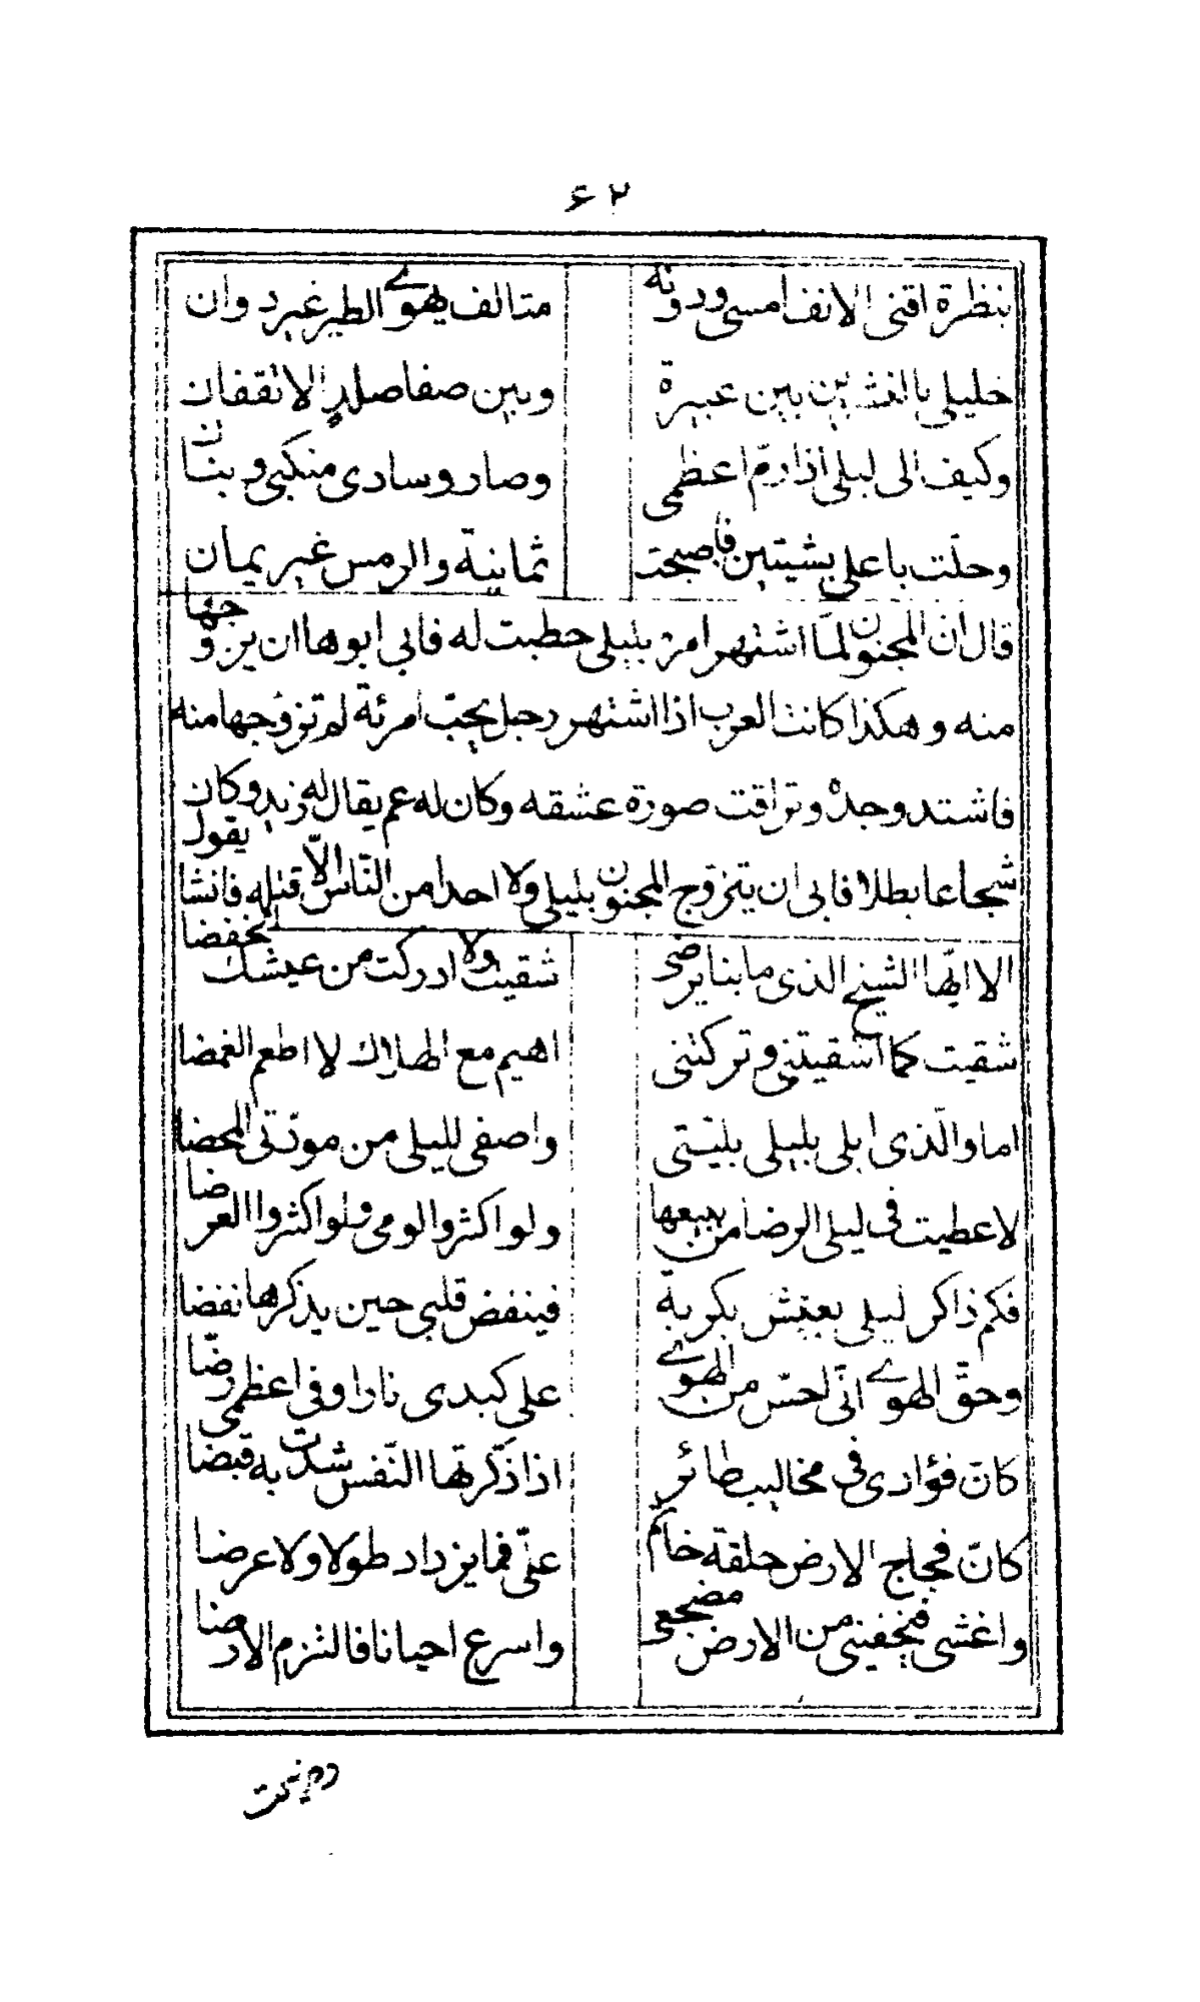 ۶۲
بنظرة اقنى الانف امسى ودونه متالف يهوے الطير غير دوان
خليلى بين عبيرة وبين صفا صلد الانقفان
وكيف الى ليلى اذا رمّ اعظمى وصار وسادى منكبى وبنان
وحلّت باعلى بشيتين فاصبحت ثمانية والرمس غير يمان
قال انّ المجنون لمّا اشتهر امره بليلى خطبت له فابى ابوها ان يزوّجها
منه وهكذا كانت العرب اذا اشتهر رجل بحبّ امرئة لم تزوّجها منه
فاشتد وجده وتراقت صورة عشقه وكان له عم يقال له زيد وكان
شجاعا بطلا فابى ان يتزوّج المجنون بليلى ولا احدا من النّاس الاّ قتله فانشا يقول
الا ايّها الشيخ الذى ما بنا يرضى شقيت ولا ادركت من عيشك الخفضا
شقيت كما اشقيتنى وتركتنى اهيم مع الهلاك لا اطعم الغمضا
اما والّذى ابلى بليلى بليّتى واصفى لليلى من مودّتى المحضا
لاعطيت فى ليلى الرضا من يبيعها ولو اكثروا لومى ولو اكثروا العرضا
فكم ذاكر ليلى يعيش بكربة فينفض قلبى حين يذكرها نفضا
وحقّ الهوے انّى لحسّ من الهوے على كبدى نارا وفى اعظمى رضّا
كانّ فؤادى فى مخاليب طائر اذا ذكّرتها النّفس شدّت به قبضا
كانّ فجاج الارض حلقة خاتم علىّ فما يزداد طولا ولا عرضا
واغشى فيخفينى من الارض مضجعى واسرع احيانا فالتزم الارضا